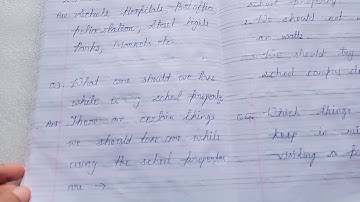 Ans Schools, Hospitals, Post office,
police station, Street lights
Parks, Markets etc.
Q3. What care should we take
while using school property
Ans There are certain things
we should take care while
using the school properties
are →
school property
2. We should not
on walls.
3. We should try
school campus
Q4. Which things
keep in
visiting a